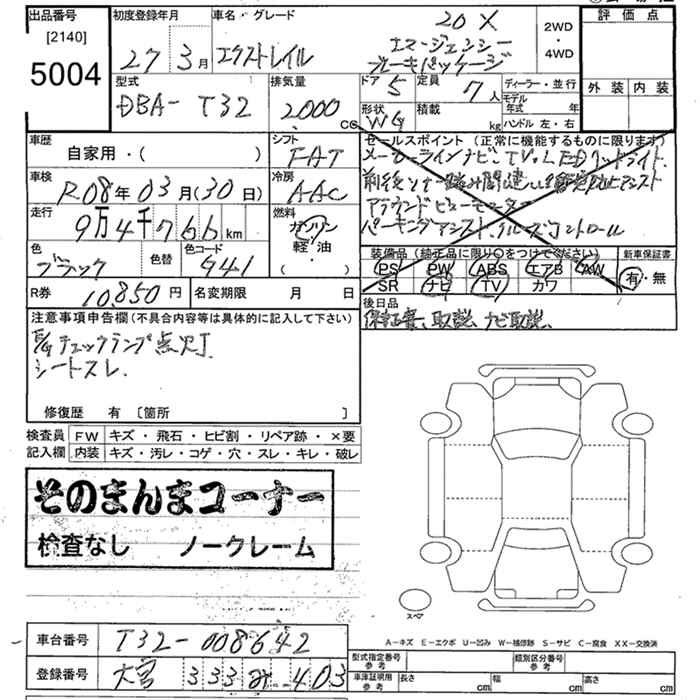 出品番号
[2140]
5004
初度登録年月
27年 3月
車名・グレード
エクストレイル
20 X
エマージェンシー
ブレーキパッケージ
2WD
・
4WD
評価点
外装 内装
型式
DBA- T32
排気量
2000 cc
ドア 5
定員 7人
ディーラー・並行
モデル年式 年
形状 WG
積載 kg
ハンドル 左・右
車歴
自家用・( )
シフト
FAT
セールスポイント (正常に機能するものに限ります)
メーカーラインナビ、TV、LEDヘッドライト、
アラウンドビューモニター
パーキングアシスト、クルーズコントロール
車検
R08年 03月 (30日)
冷房
AAC
走行
9万4千766km
燃料
ガソリン
軽油・
( )
色
ブラック
色替
色コード
G41
装備品 (純正品に限り○をつけてください)
PS PW ABS エアB AW
SR ナビ TV カワ
新車保証書
有・無
R券
10,850円
名変期限 月 日
後日品
保証書、取説、ナビ取説、
注意事項申告欄 (不具合内容等は具体的に記入して下さい)
E/gチェックランプ点灯
シートスレ.
修復歴 有 〔箇所 〕
検査員 FW キズ・飛石・ヒビ割・リペア跡・×要
記入欄 内装 キズ・汚レ・コゲ・穴・スレ・キレ・破レ
そのまんまコーナー
検査なし ノークレーム
スペア
A-キズ E-エクボ U-凹み W-補修跡 S-サビ C-腐食 XX-交換済
車台番号 T32-008642
登録番号 大宮 333 み 403
型式指定番号 参考
類別区分番号 参考
車庫証明用 参考 長さ cm 幅 cm 高さ cm